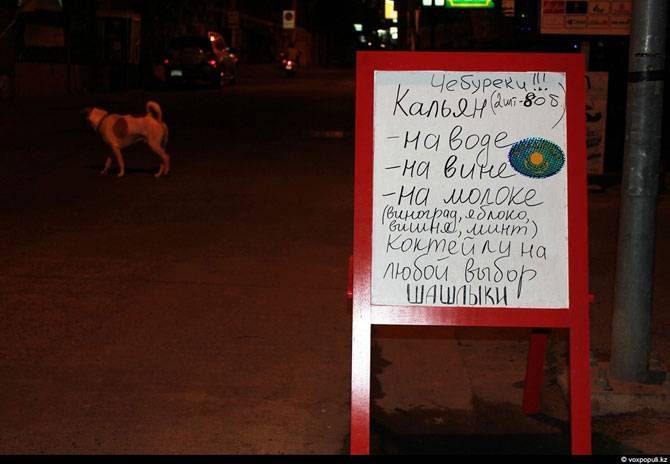 Чебуреки!!!
Кальян (2шт-80б)
-на воде
-на вине
-на молоке
(виноград, яблоко,
вишня, минт)
Коктейли на
любой выбор
ШАШЛЫКИ
© voxpopuli.kz